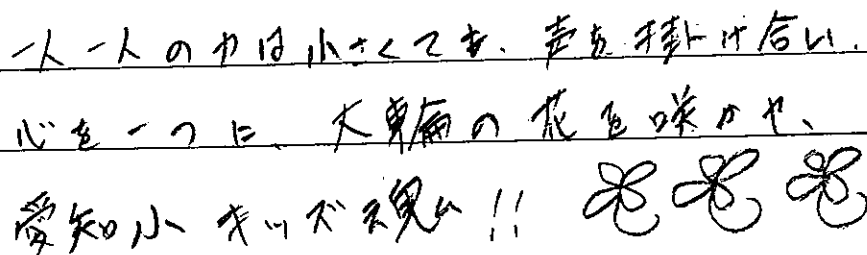 一人一人の力は小さくても、声を掛け合い、
心を一つに、大輪の花を咲かせ、
愛知小キッズ魂!!